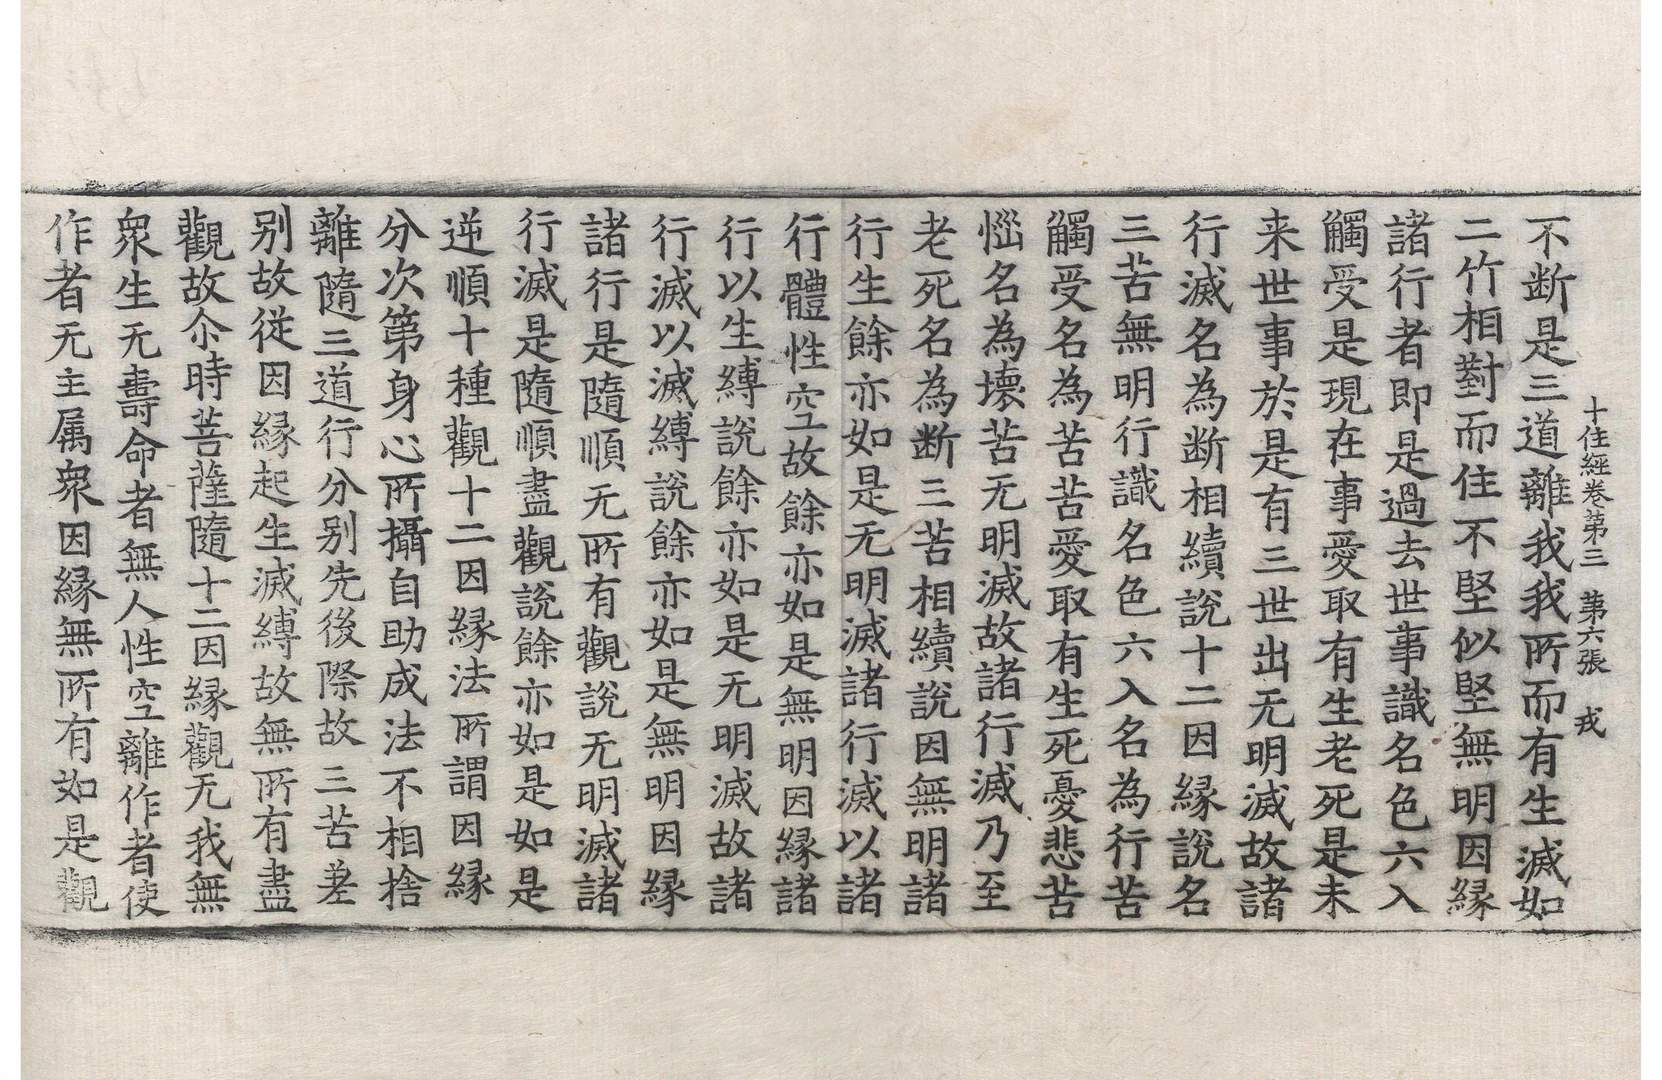 十住經卷第三　第六張　戎
不断是三道離我我所而有生滅如
二竹相對而住不堅似堅無明因縁
諸行者即是過去世事識名色六入
觸受是現在事愛取有生老死是未
来世事於是有三世出无明滅故諸
行滅名為断相續說十二因縁說名
三苦無明行識名色六入名為行苦
觸受名為苦苦愛取有生死憂悲苦
惱名為壞苦无明滅故諸行滅乃至
老死名為断三苦相續說因無明諸
行生餘亦如是无明滅諸行滅以諸
行體性空故餘亦如是無明因縁諸
行以生縛說餘亦如是无明滅故諸
行滅以滅縛說餘亦如是無明因縁
諸行是隨順无所有觀說无明滅諸
行滅是隨順盡觀說餘亦如是如是
逆順十種觀十二因縁法所謂因縁
分次第身心所攝自助成法不相捨
離隨三道行分别先後際故三苦差
别故從因縁起生滅縛故無所有盡
觀故尒時菩薩隨十二因縁觀无我無
衆生无壽命者無人性空離作者使
作者无主属衆因縁無所有如是觀